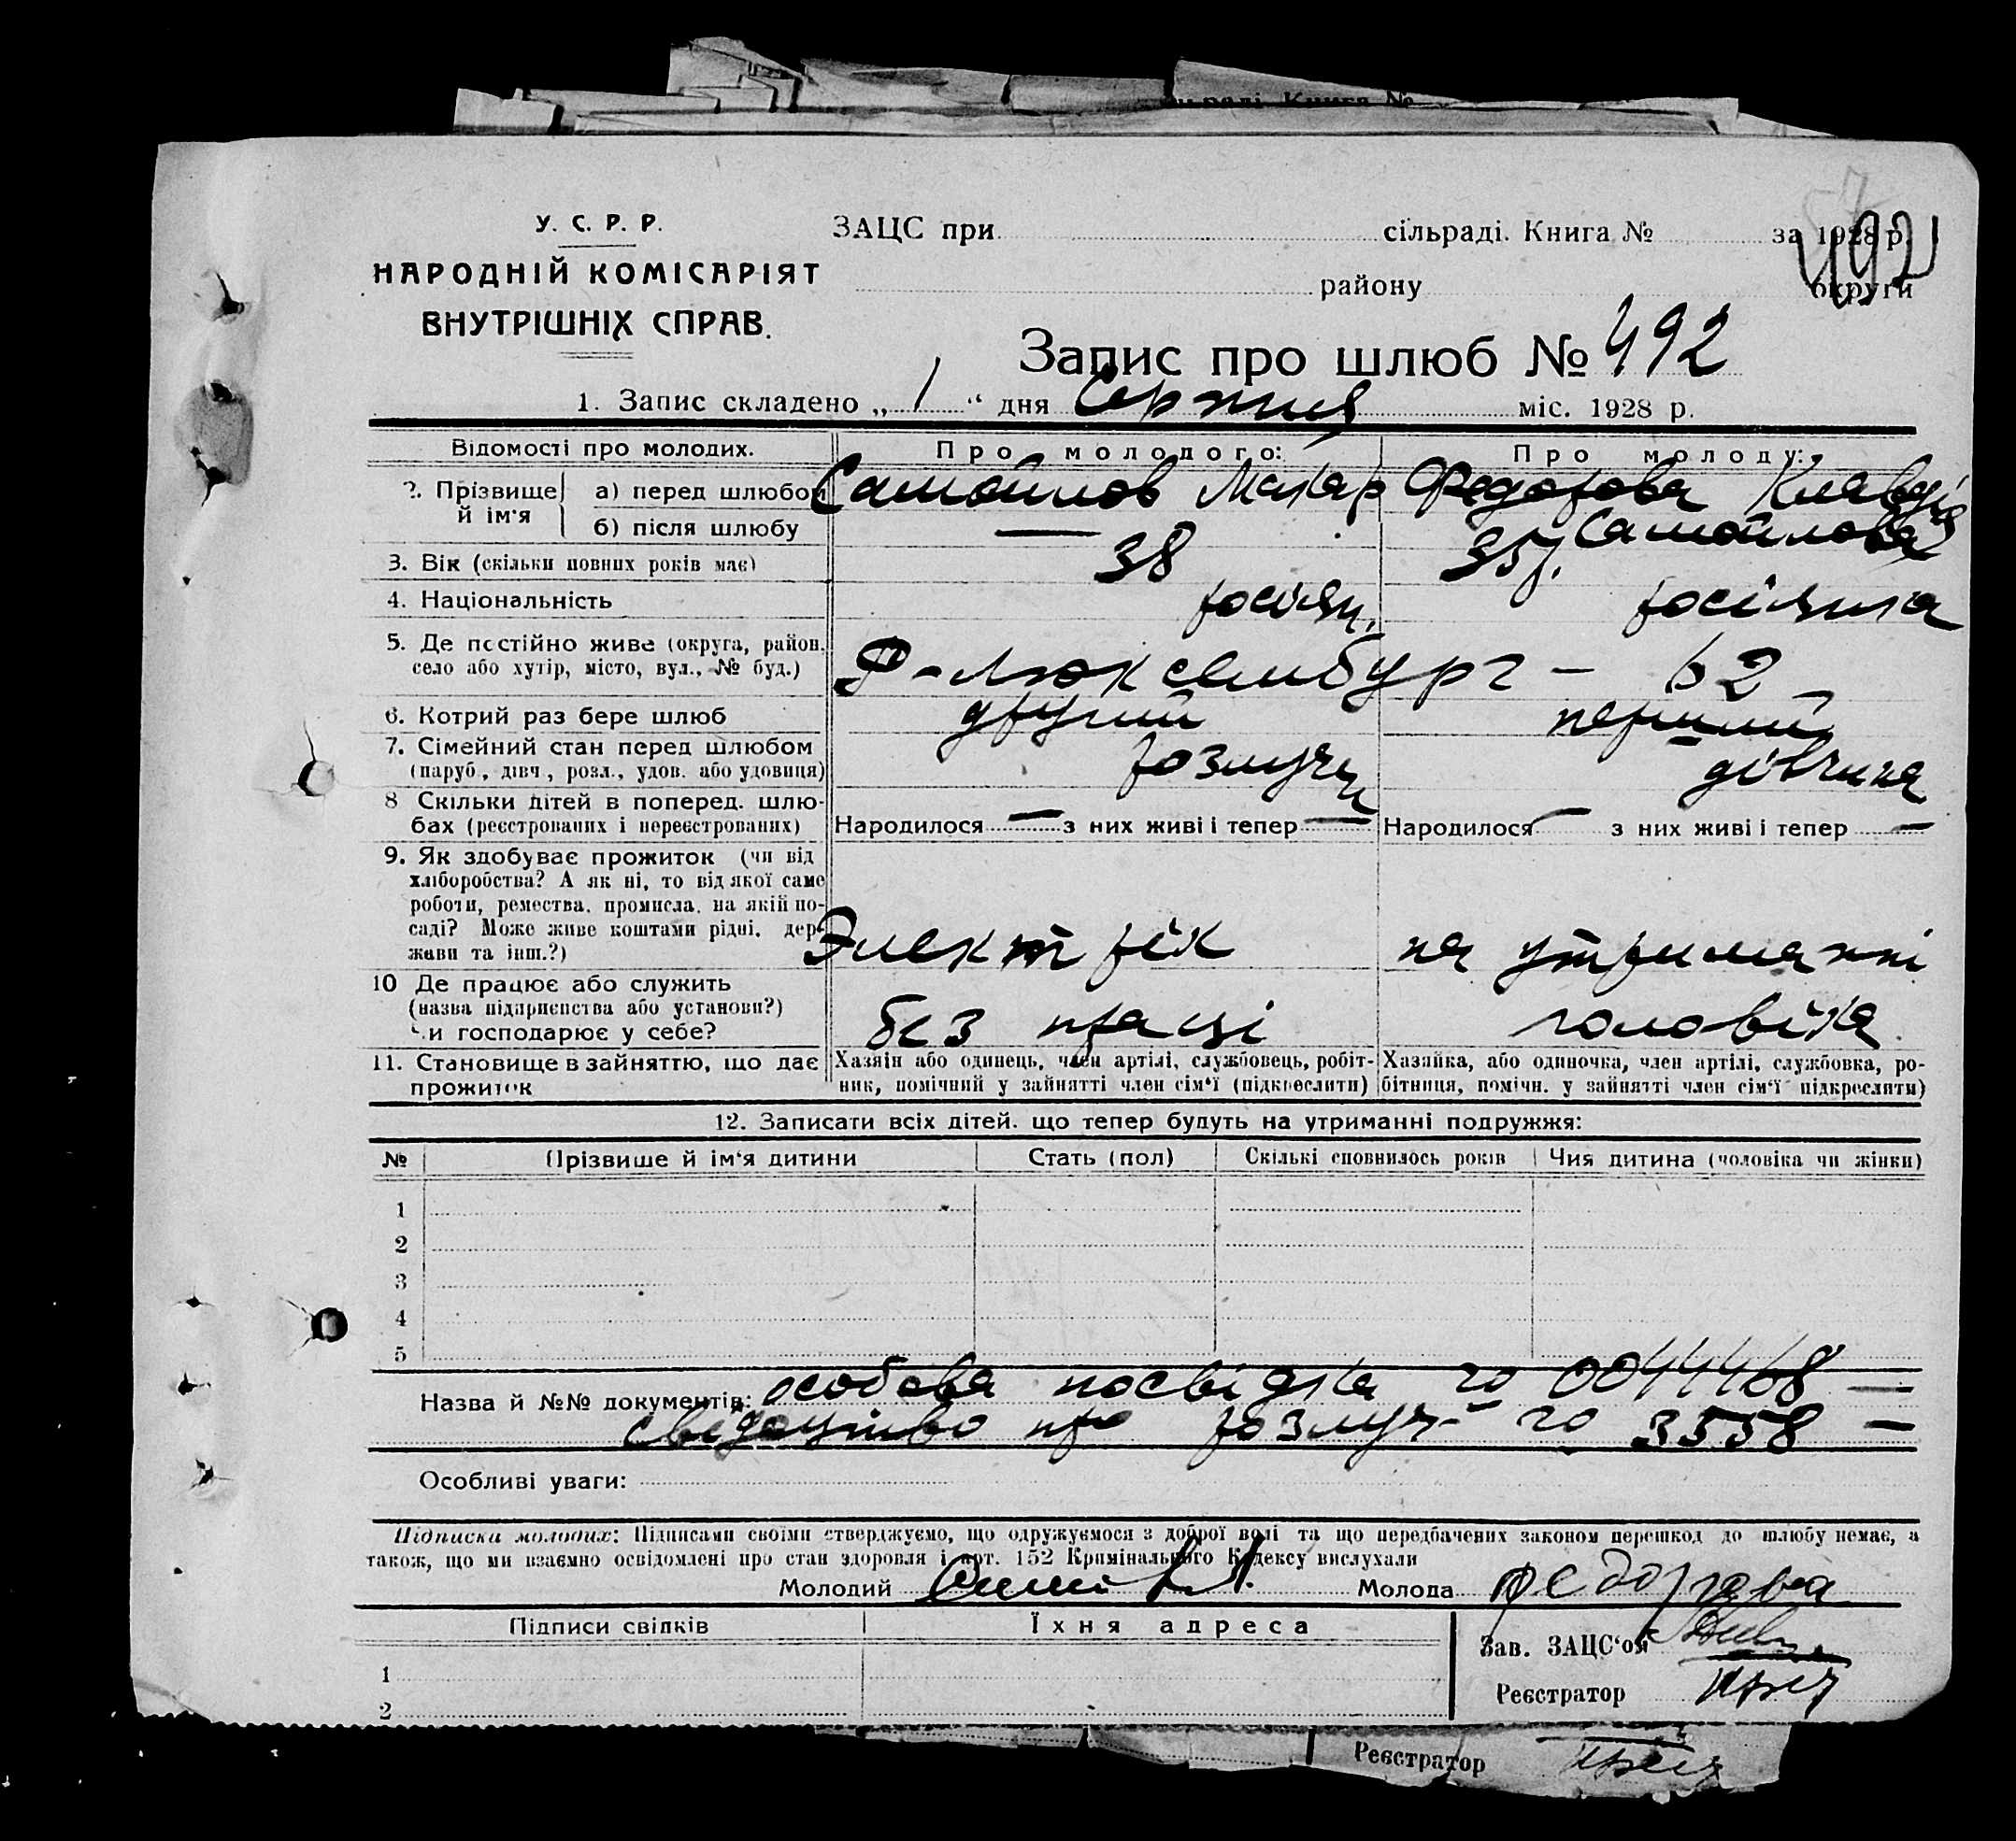 У. С. Р. Р.
НАРОДНІЙ КОМІСАРІЯТ
ВНУТРІШНІХ СПРАВ.
ЗАЦС при сільраді. Книга № за 1928 р.
492
району округи
Запис про шлюб № 492
1. Запис складено „ 1 “ дня Серпня міс. 1928 р.
Відомості про молодих. Про молодого: Про молоду:
2. Прізвище й ім'я а) перед шлюбом Самойлов Макар Федорова Клавдія
б) після шлюбу — Самойлова
3. Вік (скільки повних років має) 38 35 р.
4. Національність росіян. росіянка
5. Де постійно живе (округа, район, село або хутір, місто, вул., № буд.) Р-Люксембург – 62
6. Котрий раз бере шлюб другий перший
7. Сімейний стан перед шлюбом (паруб., дівч., розл., удов. або удовиця) розлучен дівчина
8 Скільки дітей в поперед. шлюбах (реєстрованих і нереєстрованих) Народилося — з них живі і тепер — Народилося — з них живі і тепер —
9. Як здобуває прожиток (чи від
хліборобства? А як ні, то від якої саме
роботи, ремества, промисла, на якій по-
саді? Може живе коштами рідні, дер-
жави та інш.?) Электрік на утриманні
10 Де працює або служить
(назва підприєнства або установи?)
Чи господарює у себе? без праці чоловіка
11. Становище в зайняттю, що дає прожиток
Хазяїн або одинець, член артілі, службовець, робіт-
ник, помічний у зайнятті член сім'ї (підкреслити)
Хазяйка, або одиночка, член артілі, службовка, ро-
бітниця, помічн. у зайнятті член сім'ї підкреслити)
12. Записати всіх дітей. що тепер будуть на утриманні подружжя:
№ Прізвище й ім'я дитини Стать (пол) Скількі сповнилось років Чия дитина (чоловіка чи жінки)
1
2
3
4
5
Назва й №№ документів: особова посвідка № 0044468 —
свідоцтво про розлуч- № 3558 —
Особливі уваги:
Підписка молодих: Підписами своїми стверджуємо, що одружуємося з доброї волі та що передбачених законом перешкод до шлюбу немає, а
також, що ми взаємно освідомлені про стан здоровля і арт. 152 Кримінального Кодексу вислухали
Молодий Молода Федорова
Підписи свідків Їхня адреса
Зав. ЗАЦС'ом
1
Реєстратор
2
Реєстратор